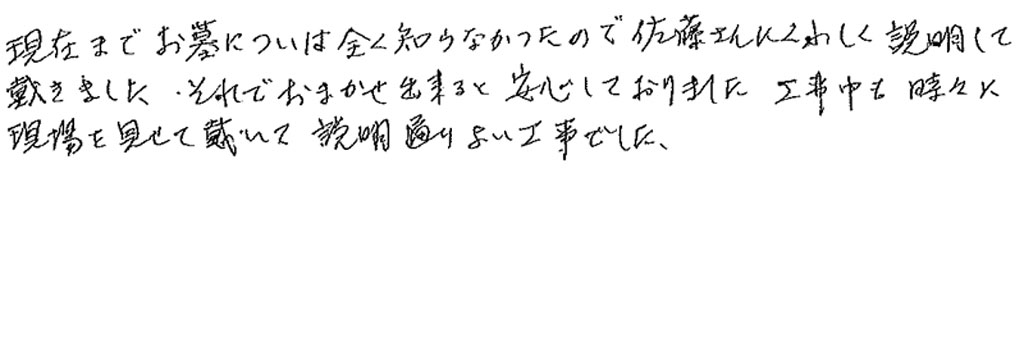 現在までお墓についは全く知らなかったので佐藤さんにくわしく説明して
戴きました.それでおまかせ出来ると安心しておりました 工事中も時々に
現場を見せて戴いて説明通りよい工事でした、